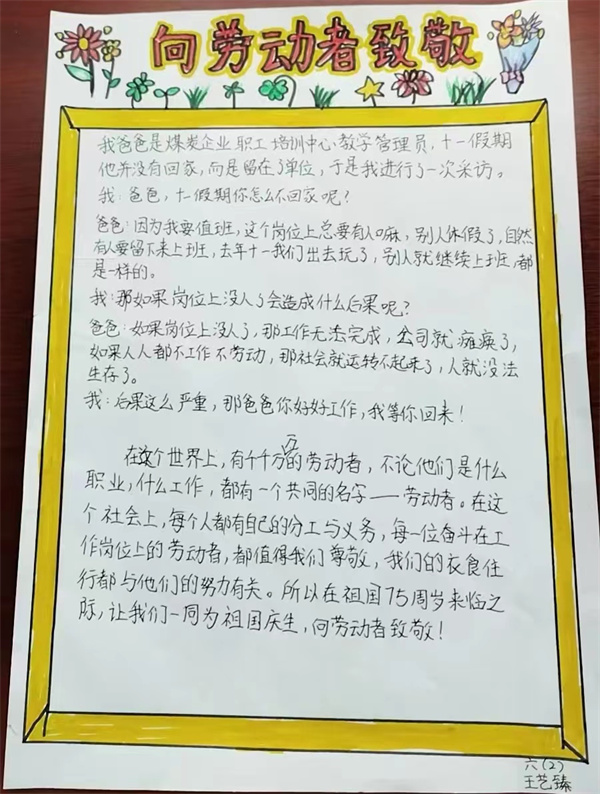 向劳动者致敬
我爸爸是煤炭企业职工培训中心教学管理员，十一假期
他并没有回家，而是留在了单位，于是我进行了一次采访。
我：爸爸，十一假期你怎么不回家呢？
爸爸：因为我要值班，这个岗位上总要有人口麻，别人休假了，自然
有人要留下来上班，去年十一我们出去玩了，别人就继续上班，都
是一样的。
我：那如果岗位上没人了会造成什么后果呢？
爸爸：如果岗位上没人了，那工作无法完成，公司就瘫痪了，
如果人人都不工作不劳动，那社会就运转不起来了，人就没法
生存了。
我：后果这么严重，那爸爸你好好工作，我等你回来！
在这个世界上，有千千万万的劳动者，不论他们是什么
职业，什么工作，都有一个共同的名字——劳动者。在这
个社会上，每个人都有自己的分工与义务，每一位奋斗在工
作岗位上的劳动者，都值得我们尊敬，我们的衣食住
行都与他们的努力有关。所以在祖国75周岁来临之
际，让我们一同为祖国庆生，向劳动者致敬！
六（2）
王艺臻